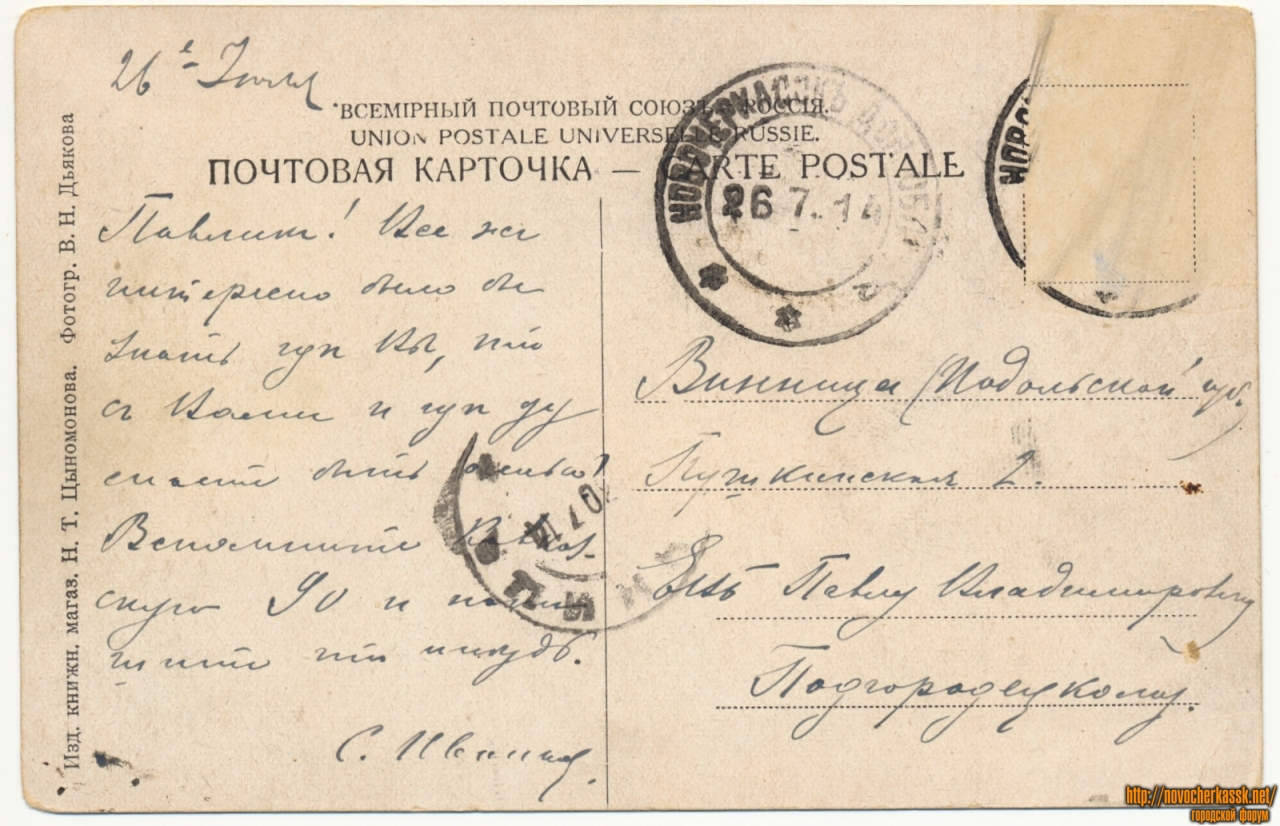 26е Июля
ВСЕМІРНЫЙ ПОЧТОВЫЙ СОЮЗЪ. РОССІЯ.
UNION POSTALE UNIVERSELLE RUSSIE.
ПОЧТОВАЯ КАРТОЧКА — CARTE POSTALE
НОВОЧЕРКАССКЪ ДОН. ОБЛ.
26.7.14
НОВО
Павлик! Все же
интересно было бы
знать где Вы, что
с Вами и где ду
маете быть осенью?
Вспомните
скую 90 и напи
шите что нибудь.
С.
Винница (Подольской губ.)
Пушкинская 2.
Его Павлу Владимировичу
Подгородецкому.
Изд. книжн. магаз. Н. Т. Цыномонова. Фотогр. В. Н. Дьякова
http://novocherkassk.net/
городской форум